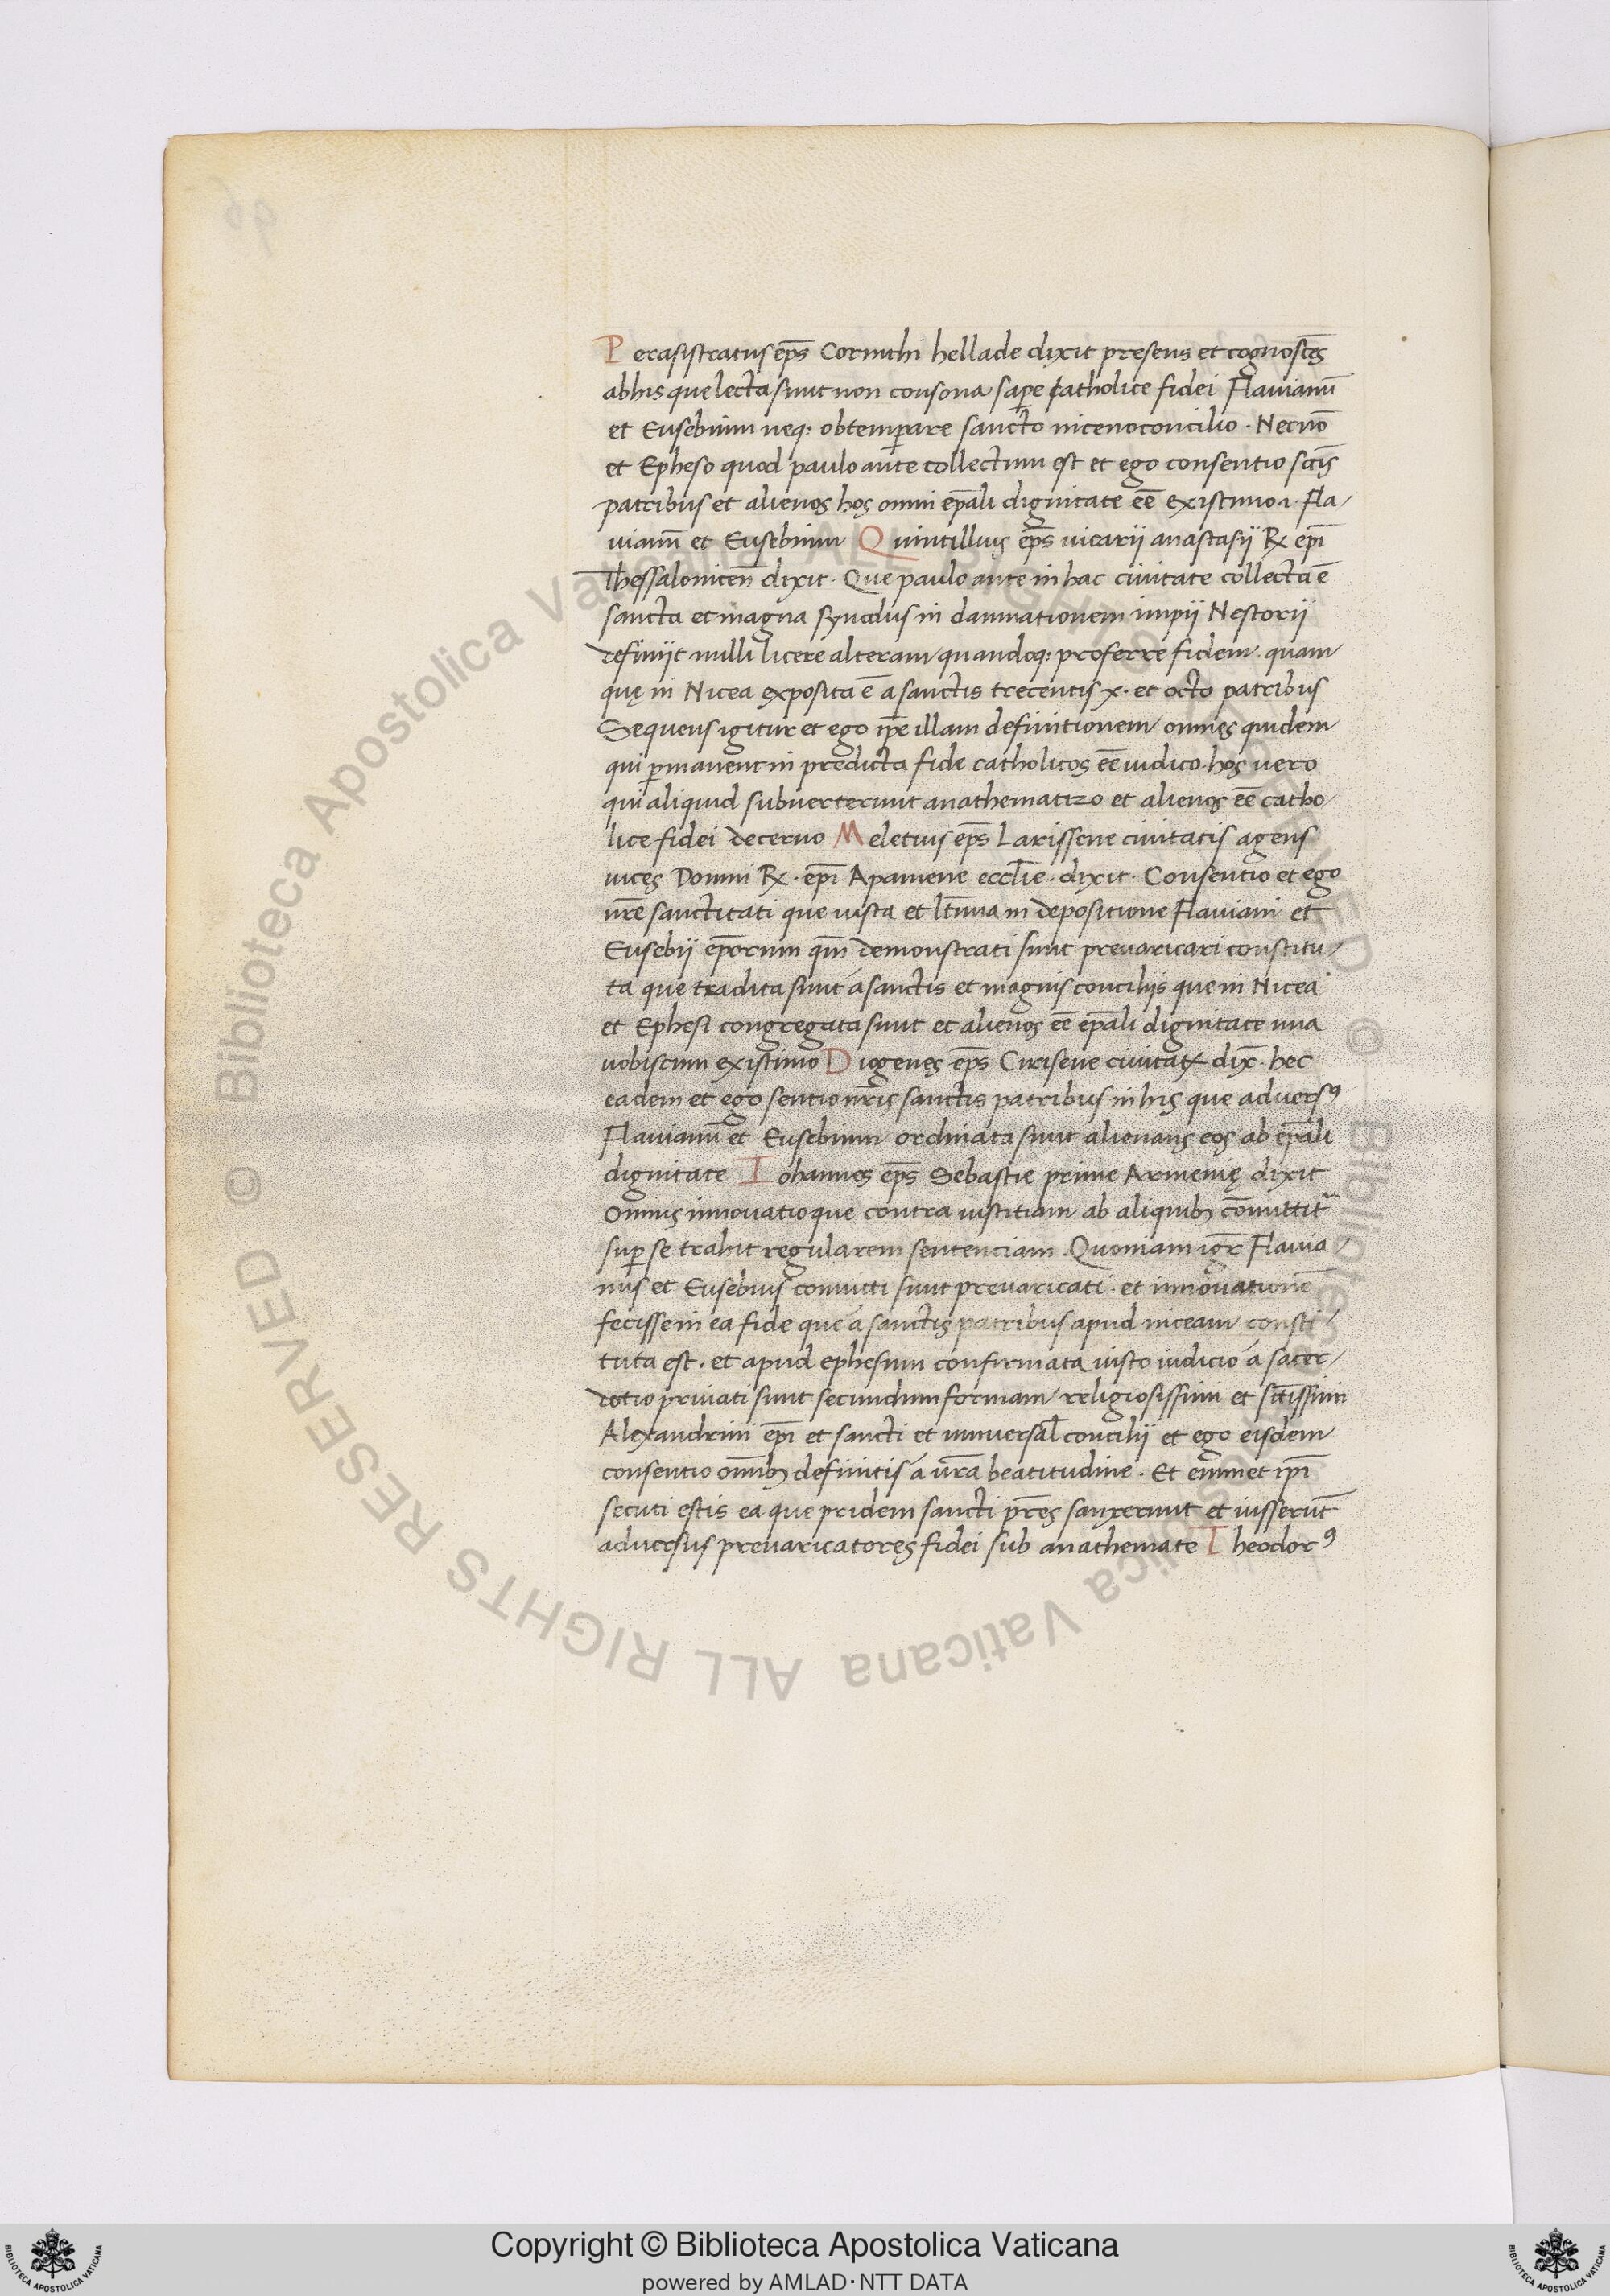 Perasistratus ep̄s Corinthi hellade dixit presens et cognoscēs
ab his que lecta sunt non consona sap̱e catholice fidei Flauianū
et Eusebium neq: obtemp̱are sancto niceno concilio · Necnō
et Epheso quod paulo ante collectum est et ego consentio sc̄is
patribus et alienos hos omni ep̄ali dignitate eē existimo · Fla/
uianū et Eusebium Quintillus ep̄s uicarii anastasii R̵ ep̄i
Thessalonicen̄ dixit · Que paulo ante in hac ciuitate collecta ē
sancta et magna synodus in damnationem impii Nestorii
definijt nulli licere alteram quandoq: proferre fidem · quam
quę in Nicea exposita ē a sanctis trecentis x · et octo patribus
Sequens igitur et ego ip̄e illam definitionem omnes quidem
qui p̱manent in predicta fide catholicos eē iudico · hos uero
qui aliquid subuerterunt anathematizo et alienos eē catho/
lice fidei decerno Meletius ep̄s Larissene ciuitatis agens
uices Domni R̵ · ep̄i Apamene eccl̄ie · dixit · Consentio et ego
ur̄e sanctitati que iusta et lt̄ima in depositione Flauiani et
Eusebij ep̄orum qm̄ demonstrati sunt preuaricari constitu/
ta que tradita sunt á sanctis et magnis concilijs que in Nicea
et Ephesi congregata sunt et alienos eē ep̄ali dignitate una
uobiscum existimo Diogenes ep̄s Cirisene ciuitatꝭ dix̄ · hec
eadem et ego sentio ur̄is sanctis patribus in his que aduersꝰ
Flauianū et Eusebium ordinata sunt alienans eos ab ep̄ali
dignitate Iohannes ep̄s Sebastie prime Armenię dixit
Omnis innouatio que contra iustitiam ab aliquibꝫ cōmittit᷑
sup̱ se trahit regularem sentenciam · Quoniam igr̄ Flauia/
nus et Eusebius conuicti sunt preuaricati · et innouationē
fecisse in ea fide que á sanctis patribus apud niceam consti/
tuta est · et apud ephesum confirmata iusto iudicio á sacer/
dotio priuati sunt secundum formam religiosissimi et sc̄tissimi
Alexandrini ep̄i et sancti et uniuersal̄ concilij et ego eisdem
consentio omībꝫ definitis á ur̄a beatitudine · Et enim et ip̄i
secuti estis ea que pridem sancti pr̄es sanxerunt et iusserūt
aduersus preuaricatores fidei sub anathemate Theodorꝰ
© Biblioteca Apostolica Vaticana ALL RIGHTS RESERVED © Biblioteca Apostolica Vaticana ALL RIGHTS RESERVED
Copyright © Biblioteca Apostolica Vaticana
powered by AMLAD·NTT DATA
BIBLIOTECA APOSTOLICA VATICANA
BIBLIOTECA APOSTOLICA VATICANA